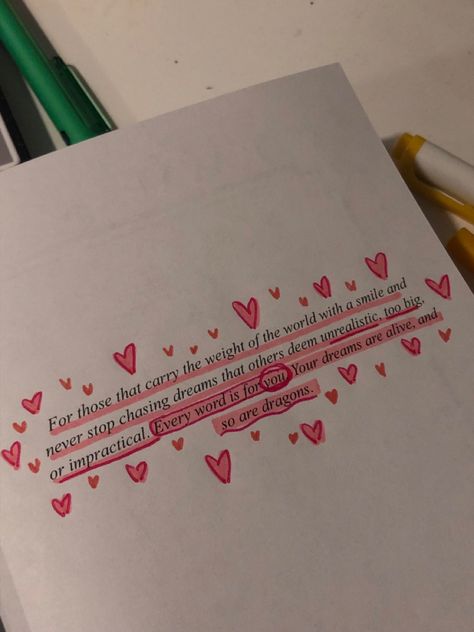 For those that carry the weight of the world with a smile and
never stop chasing dreams that others deem unrealistic, too big,
or impractical. Every word is for you. Your dreams are alive, and
so are dragons.